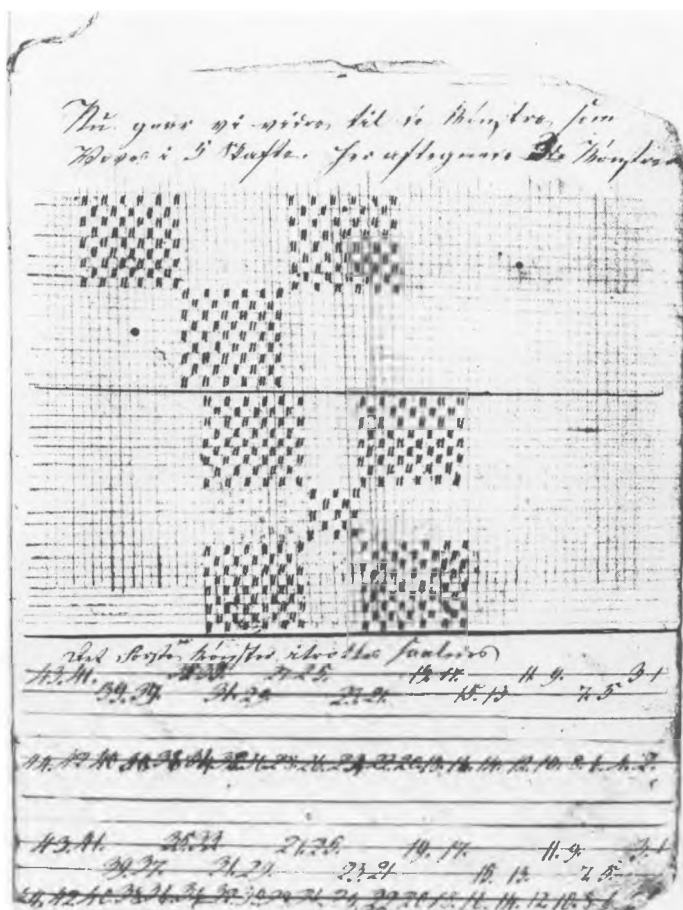 Nu gaar vi videre til de Mønstre, som
Væves i 5 Skafte. Her aftegnes 3de Mønstre
Det Første Mønster itrædes saaledes
43.41. 35.33 27.25. 19.17. 11.9. 3.1
39.37. 31.29. 23.21. 15.13 7.5
44.42.40.38.36.34.32.30.28.26.24.22.20.18.16.14.12.10.8.6.4.2.
43.41. 35.33 27.25. 19.17. 11.9. 3.1
39.37. 31.29. 23.21 15.13. 7.5
44.42.40.38.36.34.32.30.28.26.24.22.20.18.16.14.12.10.8.6